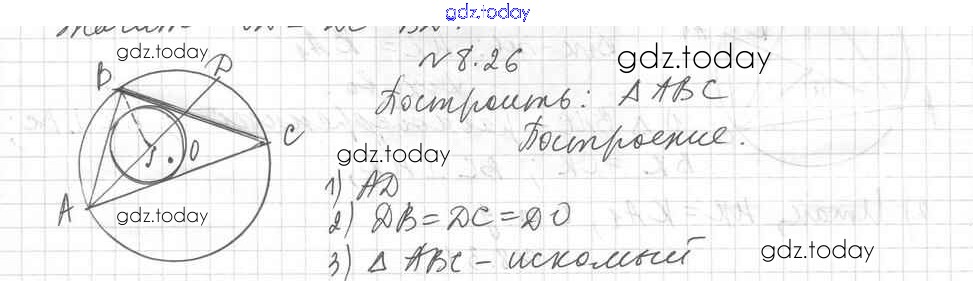 gdz.today
gdz.today
№ 8.26
gdz.today
B
D
Построить: △ABC
C
Построение.
J
O
gdz.today
1) AD
A
gdz.today
2) DB = DC = DO
3) △ ABC – искомый
gdz.today